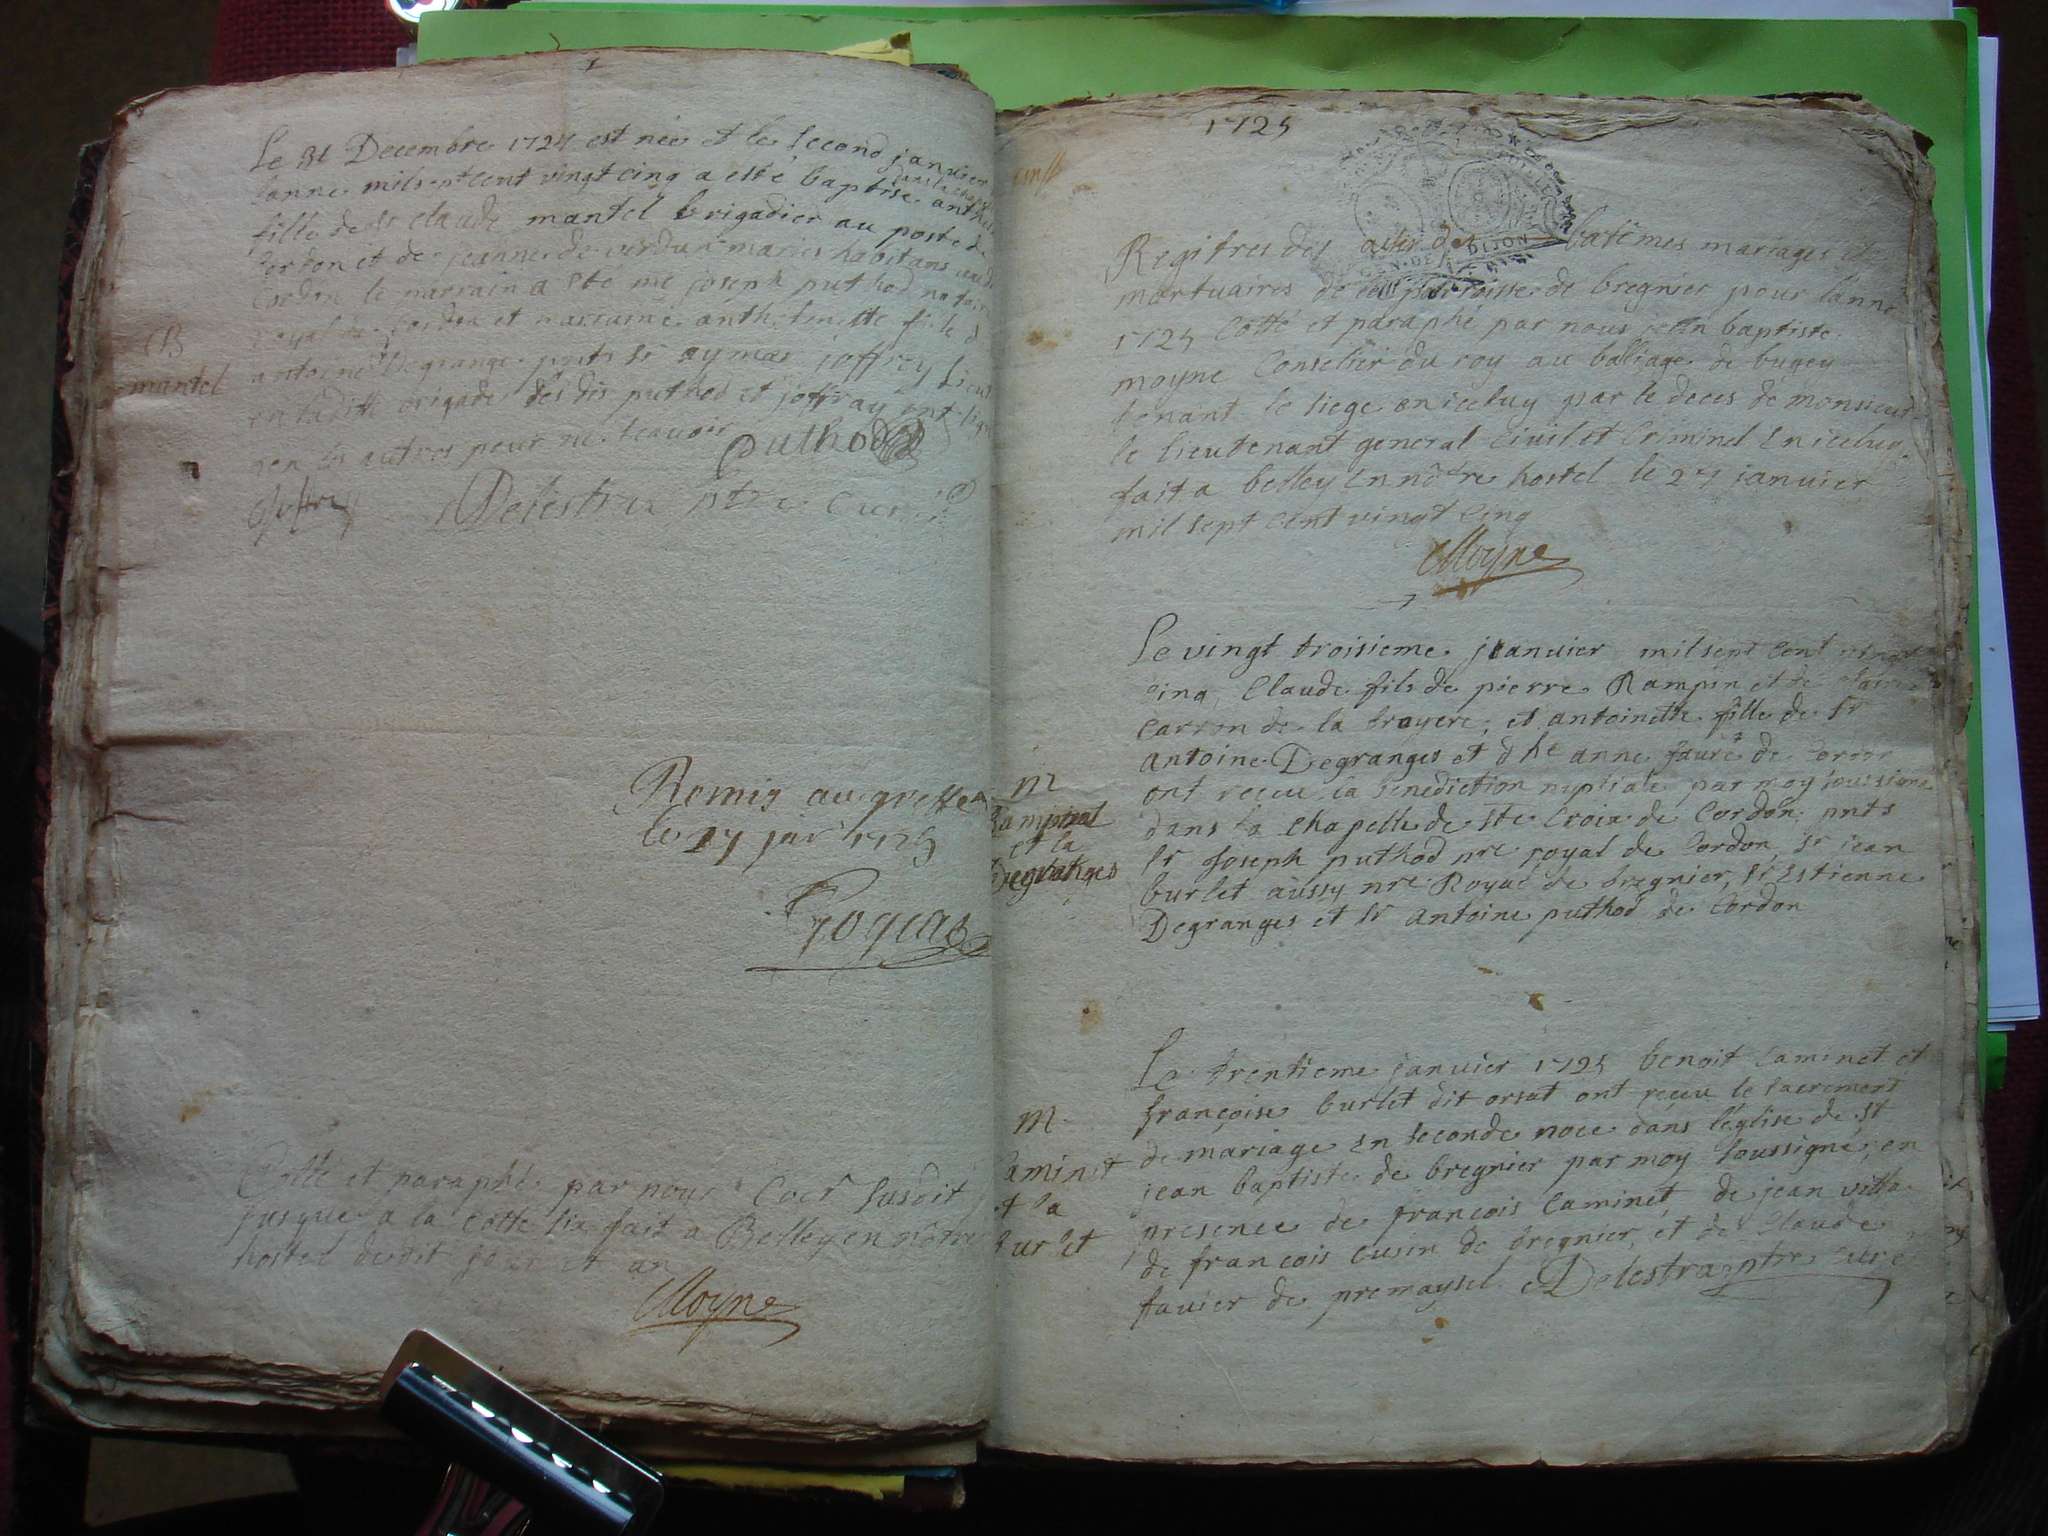 Le 31 Decembre 1724 est née et le second janvier
lanne mil sept cent vingt cinq a esté baptisé
fille de sr claude mantel brigadier au poste de
Cordon et de jeanne de verdun mariés habitans
Cordon le parrain a esté me joseph puthod notaire
royal de Cordon et marraine anthelmette fille d
antoine Degrange pnts sr aymar joffrey Lieut
en laditte brigade les dis puthod et joffray ont signé
non les autres pour ne scavoir Puthod
Delestra ptre Curé
B
mantel
Remis au greffe
le 27 janr 1725
Cotté et paraphé par nous Coer susdit
jusque a la cotte six fait a Belley en nôtre
hostel dedit jour et an
Moyne
1725
Regitres des actes des batêmes mariages et
mortuaires de la parroisse de bregnier pour lanné
1725 Cotté et paraphé par nous jean baptiste
moyne Conselier du roy au balliage de bugey
tenant le siege en iceluy par le deces de monsieur
le lieutenant general civil et Criminel En iceluy
fait a belley En nôtre hostel le 27 janvier
mil sept cent vingt cinq
Moyne
m
et la
Degranges
Le vingt troisieme janvier mil sept cent vingt
cinq, Claude fils de pierre Rampin et de claire
carron de la bruyere, et antoinette fille de sr
antoine Degranges et dlle anne faure de Cordon
ont reçeu la benediction nuptiale par moy soussigné
dans la chapelle de ste Croix de Cordon, pnts
sr joseph puthod nre royal de Cordon, sr jean
burlet aussy nre Royal de bregnier, sr Estienne
Degranges et sr antoine puthod de Cordon
m
Caminet
et la
burlet
Le trentieme janvier 1725 benoit Caminet et
françoise burlet dit orsat ont reçeu le sacrement
de mariage en seconde noce dans l'eglise de st
jean baptiste de bregnier par moy soussigné, en
presence de françois Caminet, de jean vitta
de francois cusin de bregnier, et de Claude
favier de premaysel Delestra ptre curé